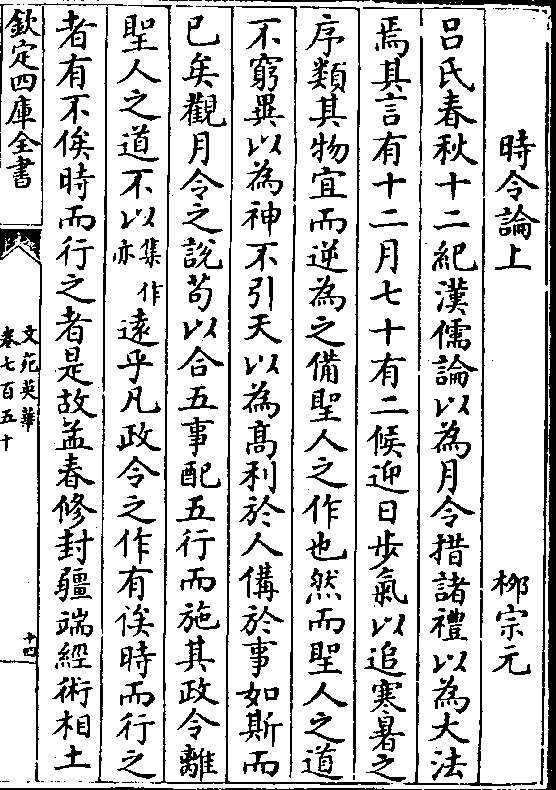 時令論上 柳宗元
吕氏春秋十二紀漢儒論以為月令措諸禮以為大法
焉其言有十二月七十有二候迎日步氣以追寒暑之
序類其物宜而逆為之備聖人之作也然而聖人之道
不窮異以為神不引天以為髙利於人備於事如斯而
已矣觀月令之説茍以合五事配五行而施其政令離
聖人之道不以集作亦遠乎凡政令之作有俟時而行之
者有不俟時而行之者是故孟春修封疆端經術相土
欽定四庫全書
文苑英華
卷七百五十
十四